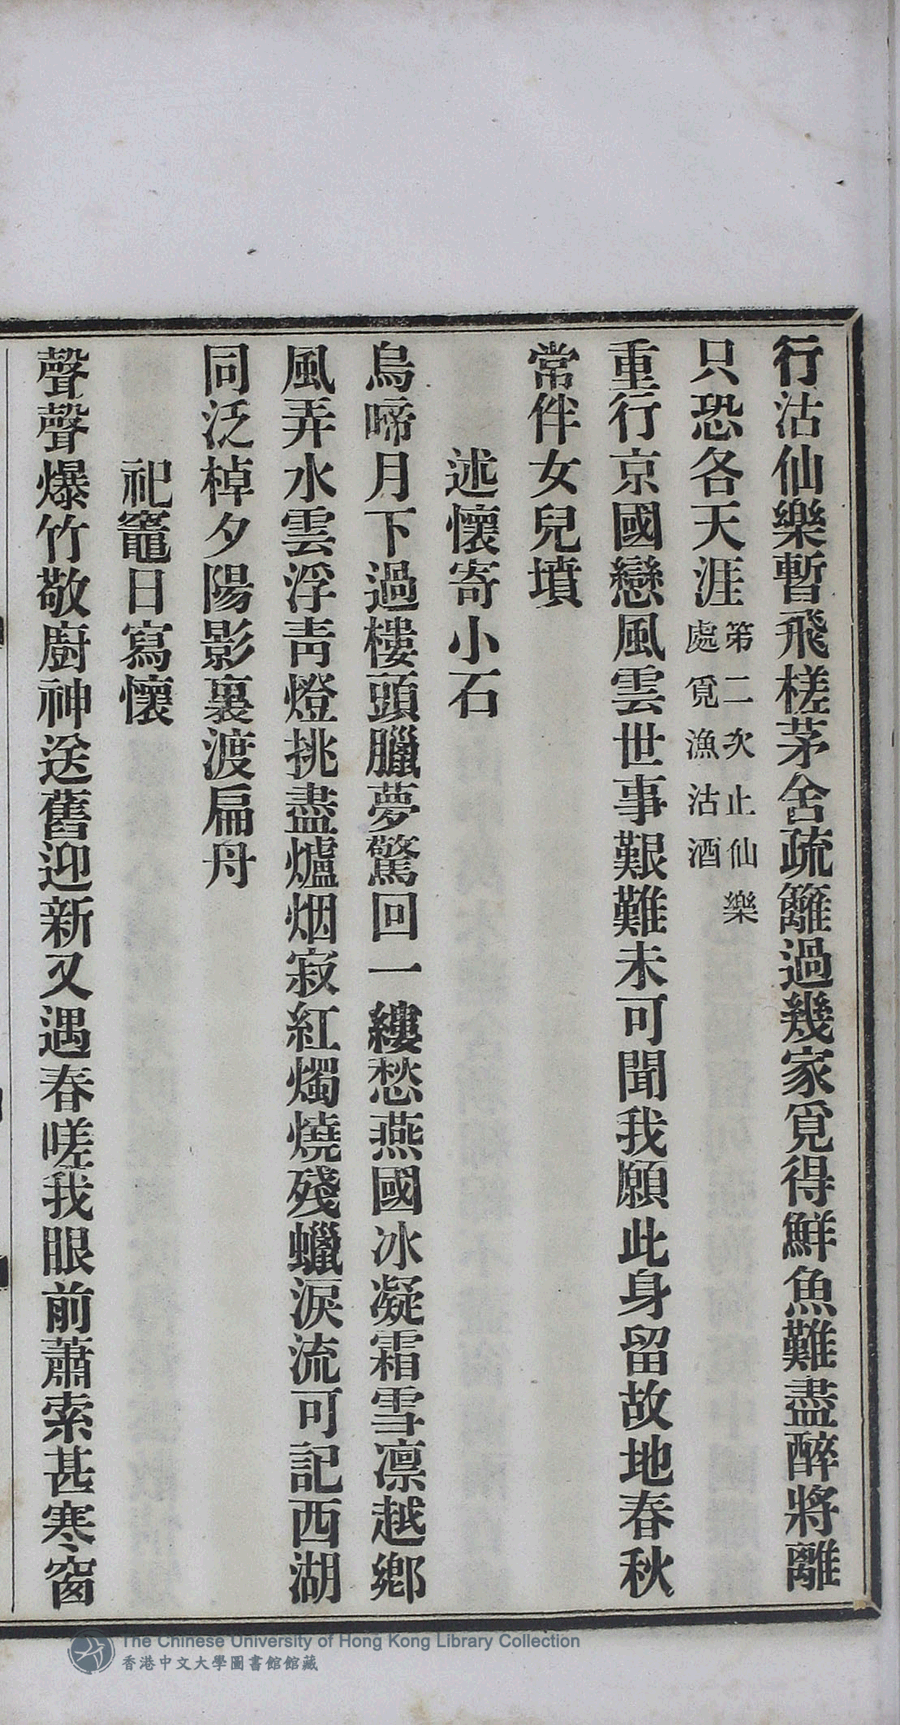 行沽仙樂暫飛槎茅舍疏籬過幾家覓得鮮魚難盡醉將離
只恐各天涯第二次止仙樂
處覓漁沽酒
重行京國戀風雲世事艱難未可聞我願此身留故地春秋
常伴女兒墳
述懷寄小石
烏啼月下過樓頭臘夢驚回一縷愁燕國冰凝霜雪凛越鄉
風弄水雲浮靑燈挑盡爐烟寂紅燭燒殘蠟淚流可記西湖
同泛棹夕陽影裏渡扁舟
祀竈日寫懷
聲聲爆竹敬廚神送舊迎新又遇春嗟我眼前蕭索甚寒窗
The Chinese University of Hong Kong Library Collection
香港中文大學圖書館館藏